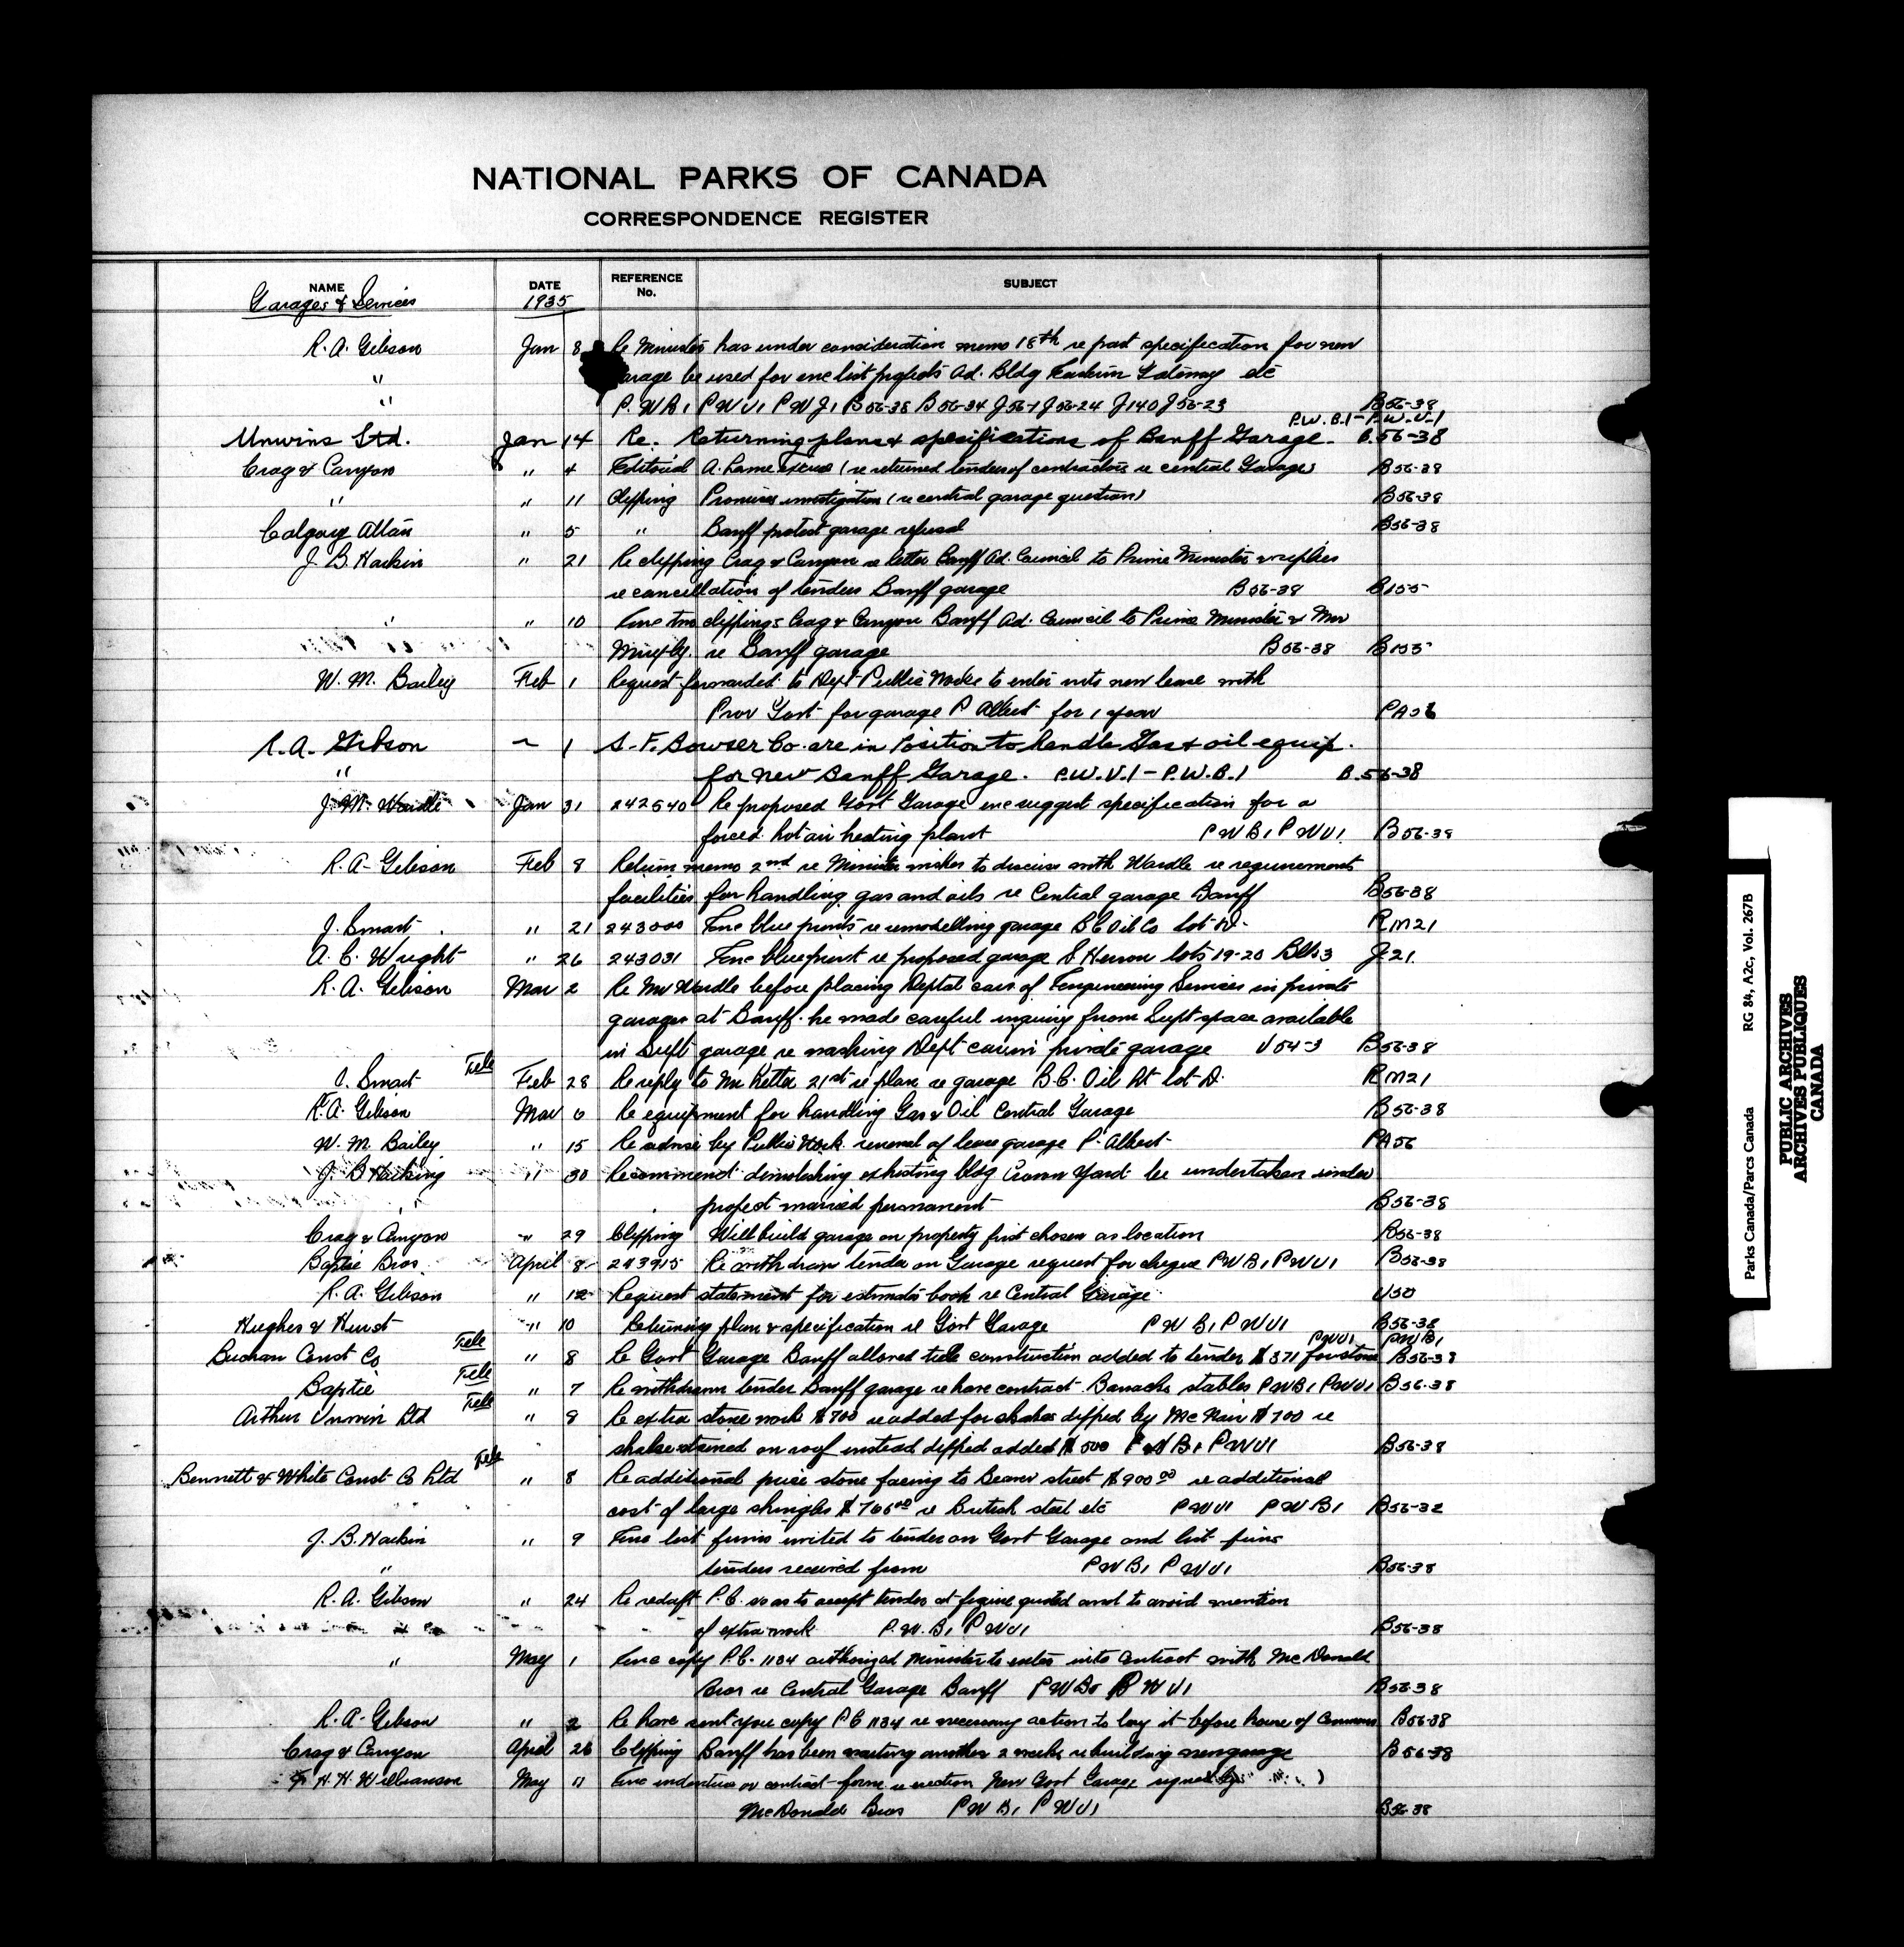 NATIONAL PARKS OF CANADA
CORRESPONDENCE REGISTER
NAME DATE REFERENCE No. SUBJECT
Garages & Services 1935
R. A. Gibson Jan 8 Re Minister has under consideration memo 18th re specification for new
" garage be used for enc list projects Ad. Bldg Eastern Gateway etc
" P.W.B1 PWU1 PWJ1 B56-38 B56-34 J56-1 J56-24 J140 J56-23 B56-38
P.W.B.1-P.W.U.1
Unwins Ltd. Jan 14 Re. Returning plans & specifications of Banff Garage. B.56-38
Crag & Canyon " 4 Editorial A. Lame Excuse (re returned tenders of contractors re central Garage) B56-38
" " 11 Clipping Promises investigation (re central garage question) B56-38
Calgary " 5 " Banff protest garage refusal B56-38
J. B. Harkin " 21 Re clipping Crag & Canyon re letter Banff Ad. Council to Prime Minister & replies
re cancellation of tenders Banff garage B56-38 B155
" " 10 Enc two clippings Crag & Canyon Banff Ad. Council to Prime Minister & Mr
Murphy. re Banff garage B56-38 B155
W. M. Bailey Feb 1 Request forwarded to Dept Public Works to enter into new lease with
Prov Govt for garage P Albert for 1 year PA56
R. A. Gibson " 1 S. F. Bowser Co. are in Position to handle Gas & oil equip.
" for new Banff Garage. P.W.U.1 - P.W.B.1 B.56-38
J. M. Wardle Jan 31 242540 Re proposed Govt Garage enc suggest specification for a
forced hot air heating plant PWB1 PWU1 B56-38
R. A. Gibson Feb 8 Return memo 2nd re Minister wishes to discuss with Wardle re requirement
facilities for handling gas and oils re Central garage Banff B56-38
J. Smart " 21 243000 Enc blue prints re remodelling garage B C Oil Co lot D. RM21
A. C. Wright " 26 243031 Enc blueprint re proposed garage S Herron lots 19-20 Blk 3 J 21.
R. A. Gibson Mar 2 Re Mr Wardle before placing Deptal cars of Engineering Services in private
garages at Banff. he made careful inquiry from Supt space available
in Supt garage re washing Dept car in private garage U54-3 B56-38
J. Smart Tele Feb 28 Re reply to Mr letter 21st re plan re garage B.C. Oil Lt lot D. RM21
R. A. Gibson Mar 6 Re equipment for handling Gas & Oil Central Garage B56-38
W. M. Bailey " 15 Re advise by Public Work renewal of lease garage P. Albert PA56
J. B. Harking " 30 Recommend demolishing existing bldg Crown Yard be undertaken under
project married permanent B56-38
Crag & Canyon " 29 Clipping Will build garage on property first chosen as location B56-38
Baptie Bros. April 8 243915 Re withdraw tender on Garage request for cheque PWB1 PWU1 B56-38
R. A. Gibson " 12 Request statement for estimates book re Central Garage U50
Hughes & Hurst " 10 Returning plan & specification re Govt Garage PWB1 PWU1 B56-38
PWU1 PWB1
Buchan Const Co Tele " 8 Re Govt Garage Banff allowed tile construction added to tender $371 for stone B56-38
Baptie Tele " 7 Re withdrawn tender Banff garage re have contract Barracks stables PWB1 PWU1 B56-38
Arthur Unwin Ltd Tele " 8 Re extra stone work $700 re added for shakes dipped by McNair $700 re
shake stained on roof instead dipped added $500 PWB1 PWU1 B56-38
Bennett & White Const Co Ltd Tele " 8 Re additional price stone facing to Beaver street $900.00 re additional
cost of large shingles $706.00 re British steel etc PWU1 PWB1 B56-32
J. B. Harkin " 9 Enc list firms invited to tender on Govt Garage and list firms
" tenders received from PWB1 PWU1 B56-38
R. A. Gibson " 24 Re redraft P.C. so as to accept tender at figure quoted and to avoid mention
of extra work P.W.B1 PWU1 B56-38
" May 1 Enc copy P.C. 1134 authorized Minister to enter into Contract with McDonald
Bros re Central Garage Banff PWB1 PWU1 B56-38
R. A. Gibson " 2 Re have sent you copy P.C 1134 re necessary action to lay it before house of Commons B56-38
Crag & Canyon April 26 Clipping Banff has been waiting another 2 weeks re building new garage B56-38
H. H. Williamson May 11 Enc indenture or contract form re erection New Govt Garage signed by
McDonald Bros PWB1 PWU1 B56-38
Parks Canada/Parcs Canada RG 84, A2c, Vol. 267B
PUBLIC ARCHIVES
ARCHIVES PUBLIQUES
CANADA